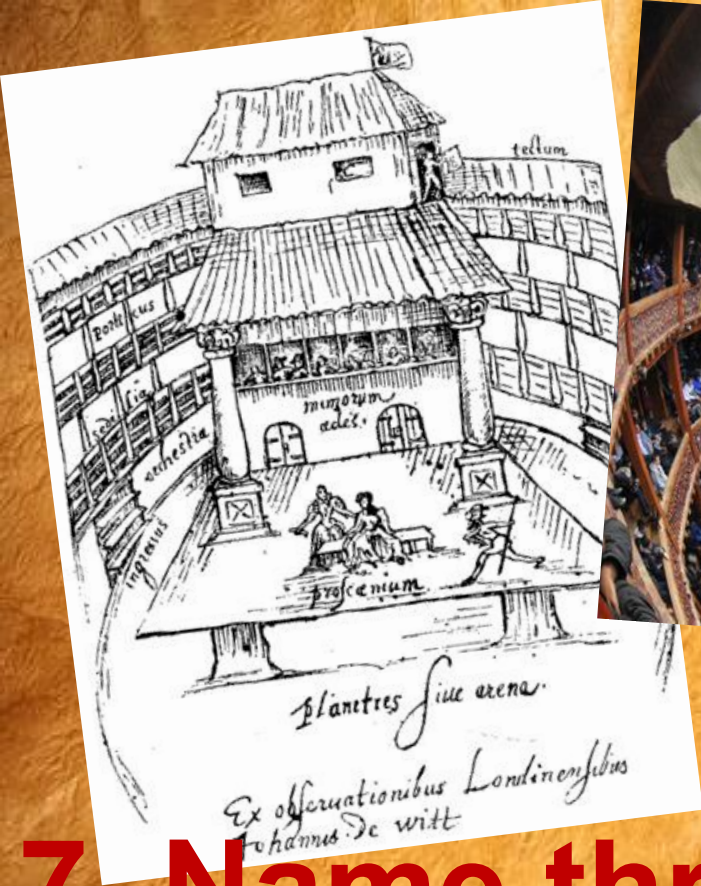 tectum
porticus
sedilia
orchestra
mimorum
ædes.
ingressus
proscænium
planities siue arena.
Ex obseruationibus Londinensibus
Johannis De witt
7. Name thr